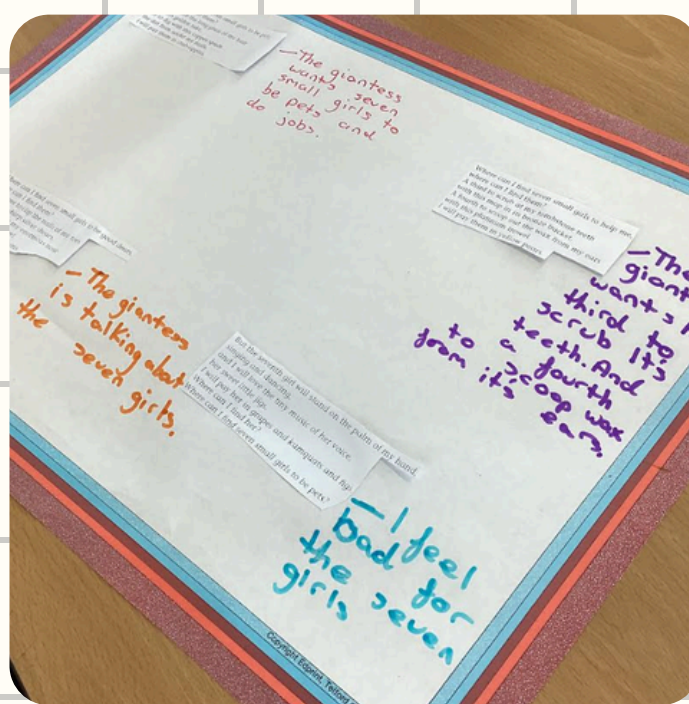 small girls to be pets
—The giantess
wants seven
small girls to
be pets and
do jobs.
Where can I find seven small girls to help me,
where can I find them?
A third to scrub at my tombstone teeth
with this mop in its bronze bucket.
A fourth to scoop out the wax from my ears
with this platinum trowel.
I will pay them in yellow pears.
—The
giant
wants
third to
scrub its
teeth. And
to a fourth
scoop wax
from it's
ears.
can I find seven small girls to be good dears,
can I find them?
—The giantess
is talking about
the seven girls.
But the seventh girl will stand on the palm of my hand,
singing and dancing,
and I will love the tiny music of her voice,
her sweet little jigs.
I will pay her in grapes and kumquats and figs.
Where can I find her?
Where can I find seven small girls to be pets?
—I feel
bad for
the seven
girls
Copyright Edprint, Telford